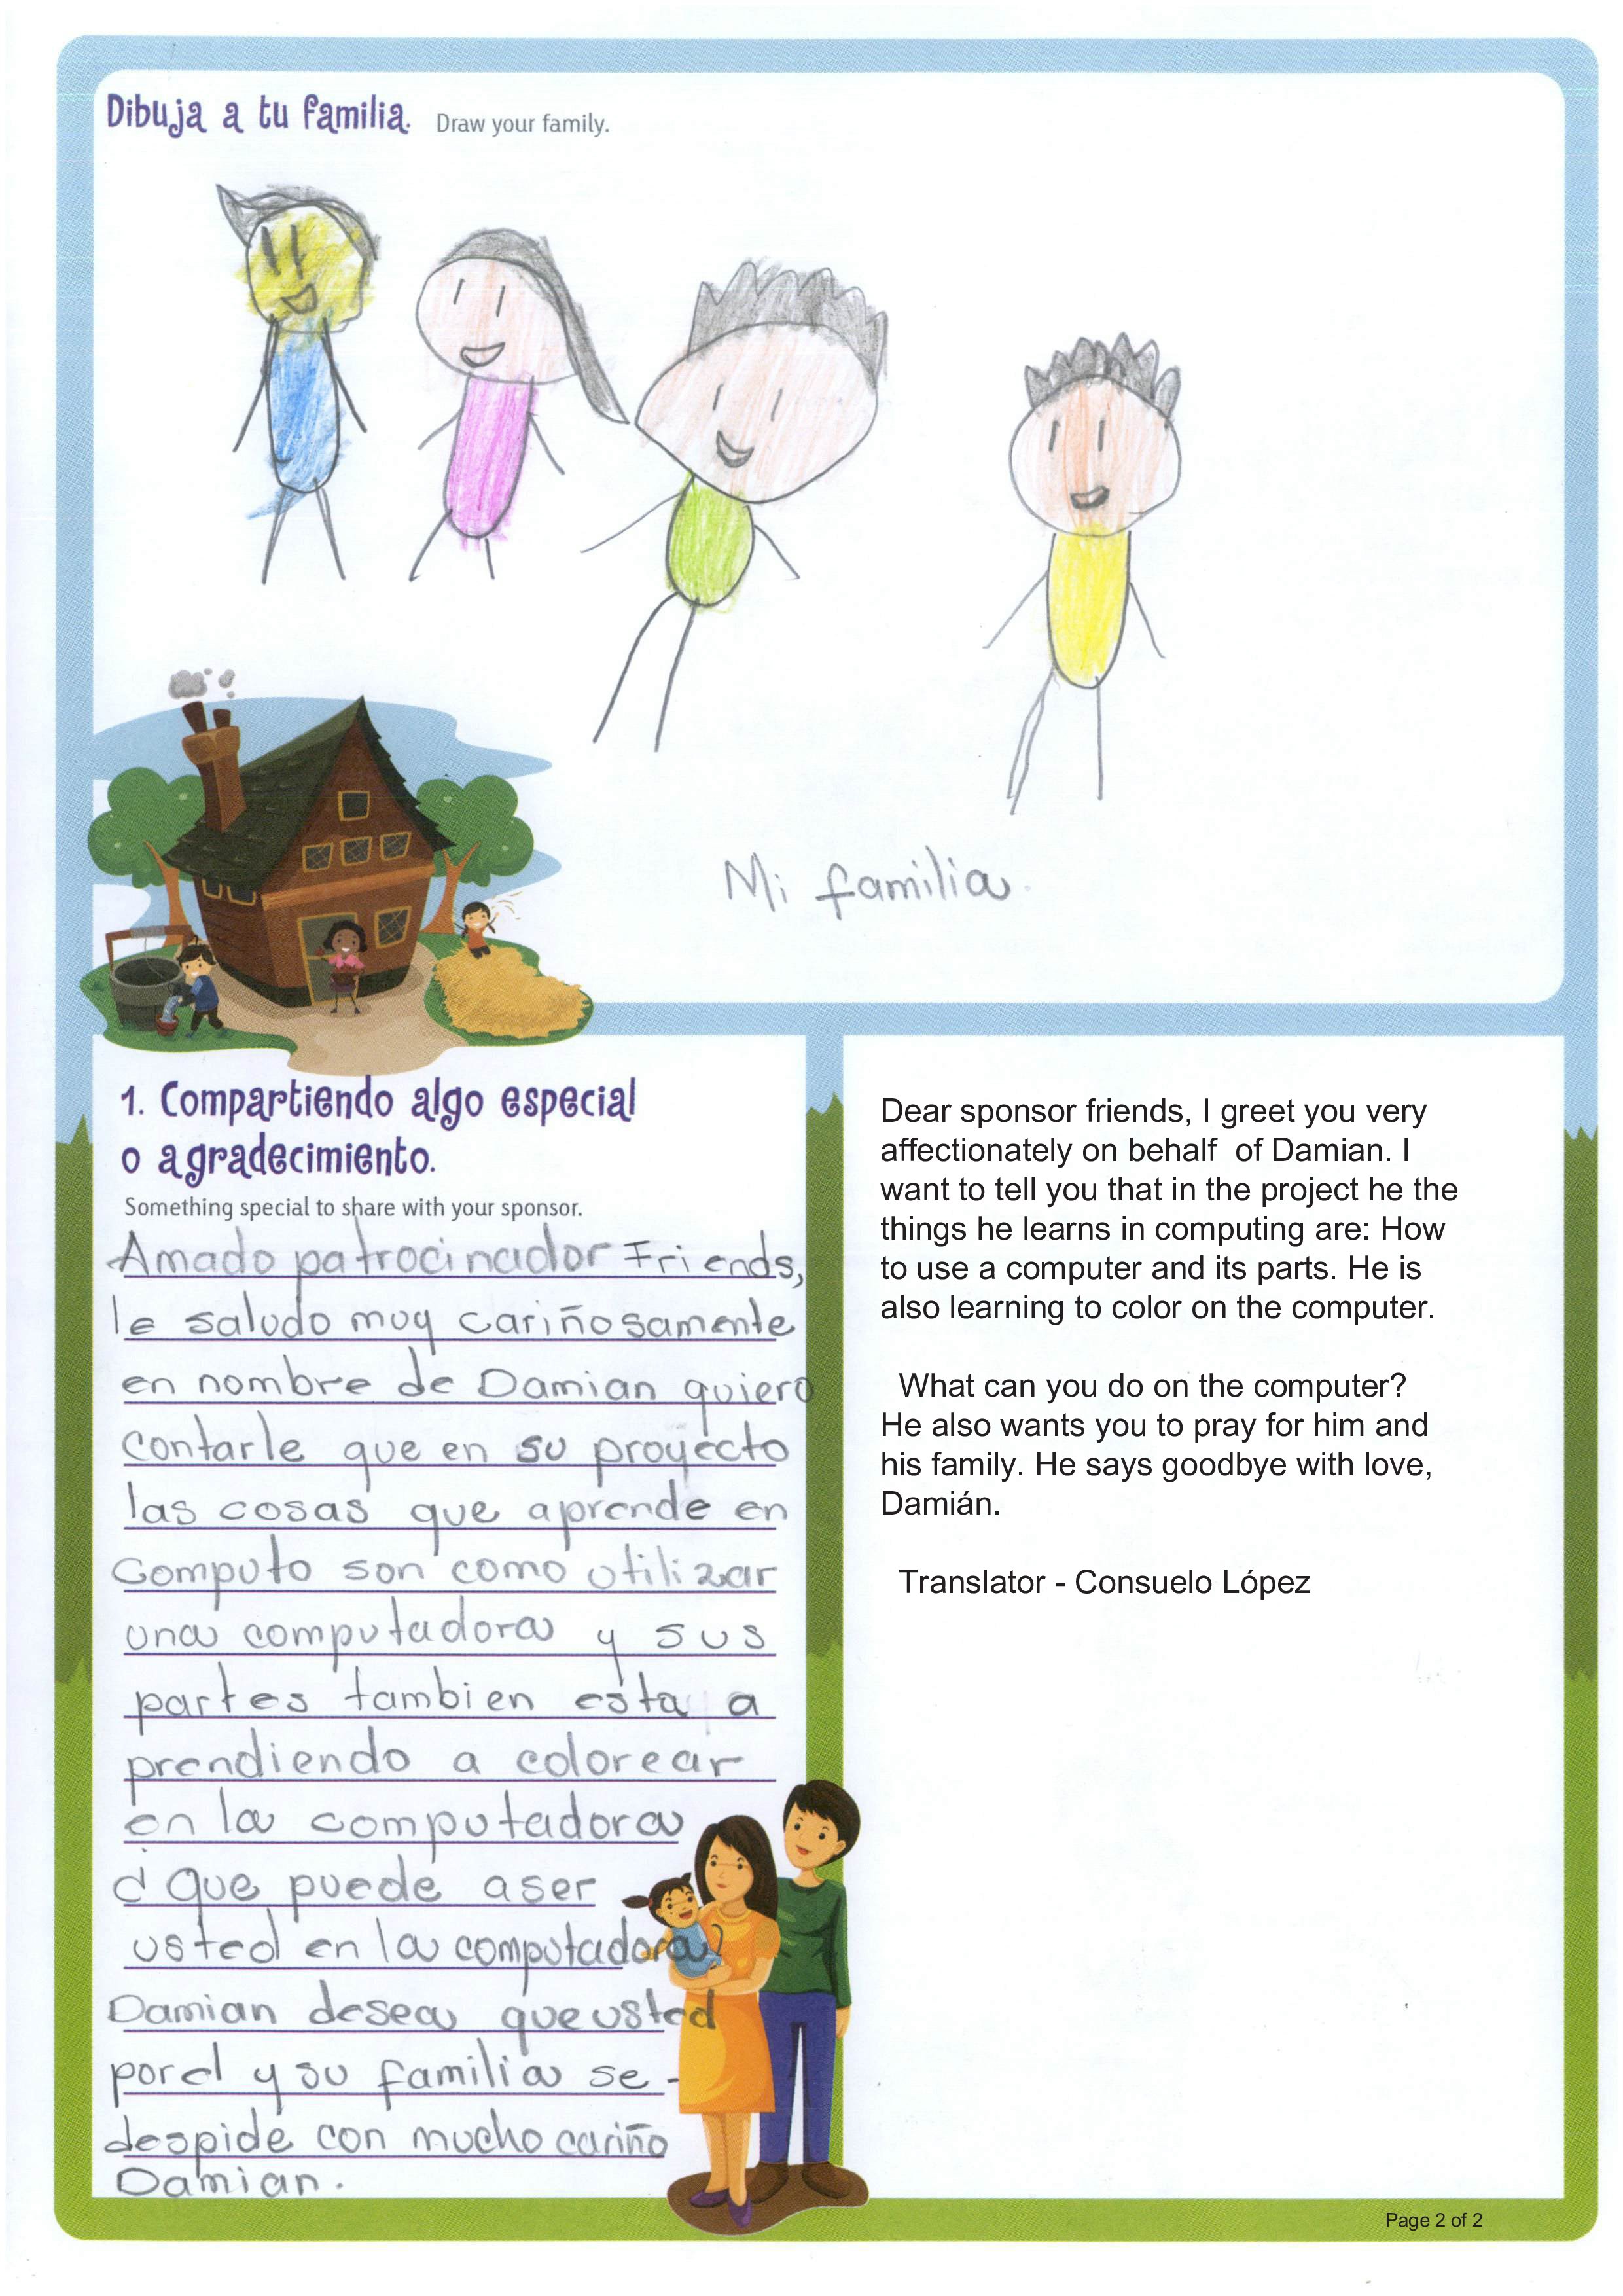 Dibuja a tu familia. Draw your family.
Mi familia.
1. Compartiendo algo especial
o agradecimiento.
Something special to share with your sponsor.
Amado patrocinador Friends,
le saludo muy cariñosamente
en nombre de Damian quiero
contarle que en su proyecto
las cosas que aprende en
Computo son como utilizar
una computadora y sus
partes tambien esta a
prendiendo a colorear
en la computadora
¿Que puede aser
usted en la computadora
Damian desea que usted
por el y su familia se-
despide con mucho cariño
Damian.
Dear sponsor friends, I greet you very
affectionately on behalf of Damian. I
want to tell you that in the project he the
things he learns in computing are: How
to use a computer and its parts. He is
also learning to color on the computer.
What can you do on the computer?
He also wants you to pray for him and
his family. He says goodbye with love,
Damián.
Translator - Consuelo López
Page 2 of 2